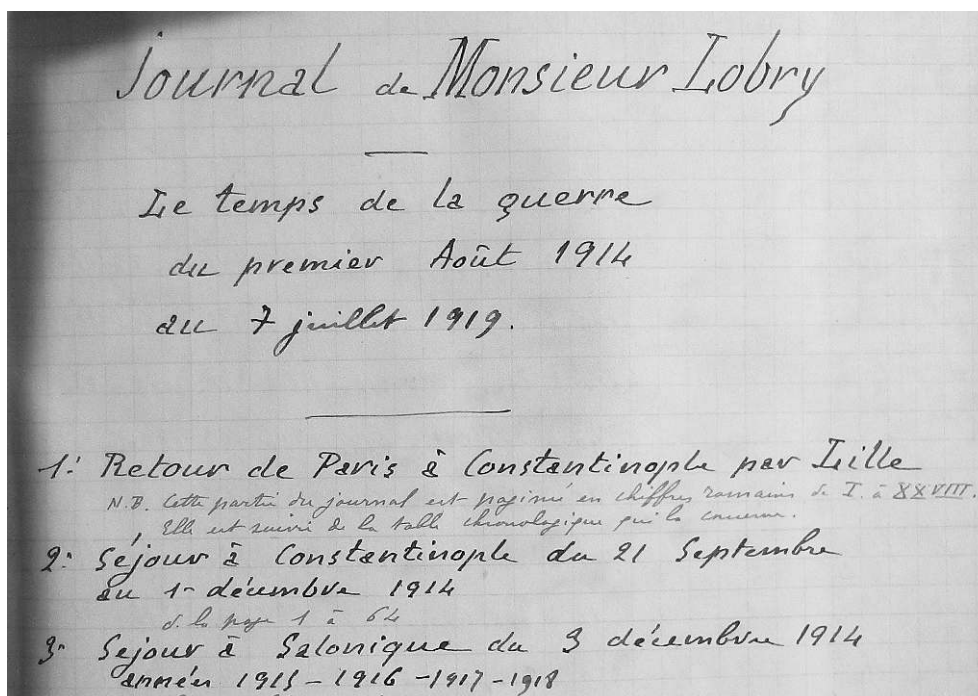 Journal de Monsieur Lobry
Le temps de la guerre
du premier Août 1914
au 7 juillet 1919.
1: Retour de Paris à Constantinople par Lille
N.B. Cette partie du journal est paginée en chiffres romains de I. à XXVIII.
Elle est suivie de la table chronologique qui la concerne.
2: Séjour à Constantinople du 21 Septembre
au 1- décembre 1914
d. la page 1 à 64
3: Séjour à Salonique du 3 décembre 1914
années 1915 - 1916 - 1917 - 1918